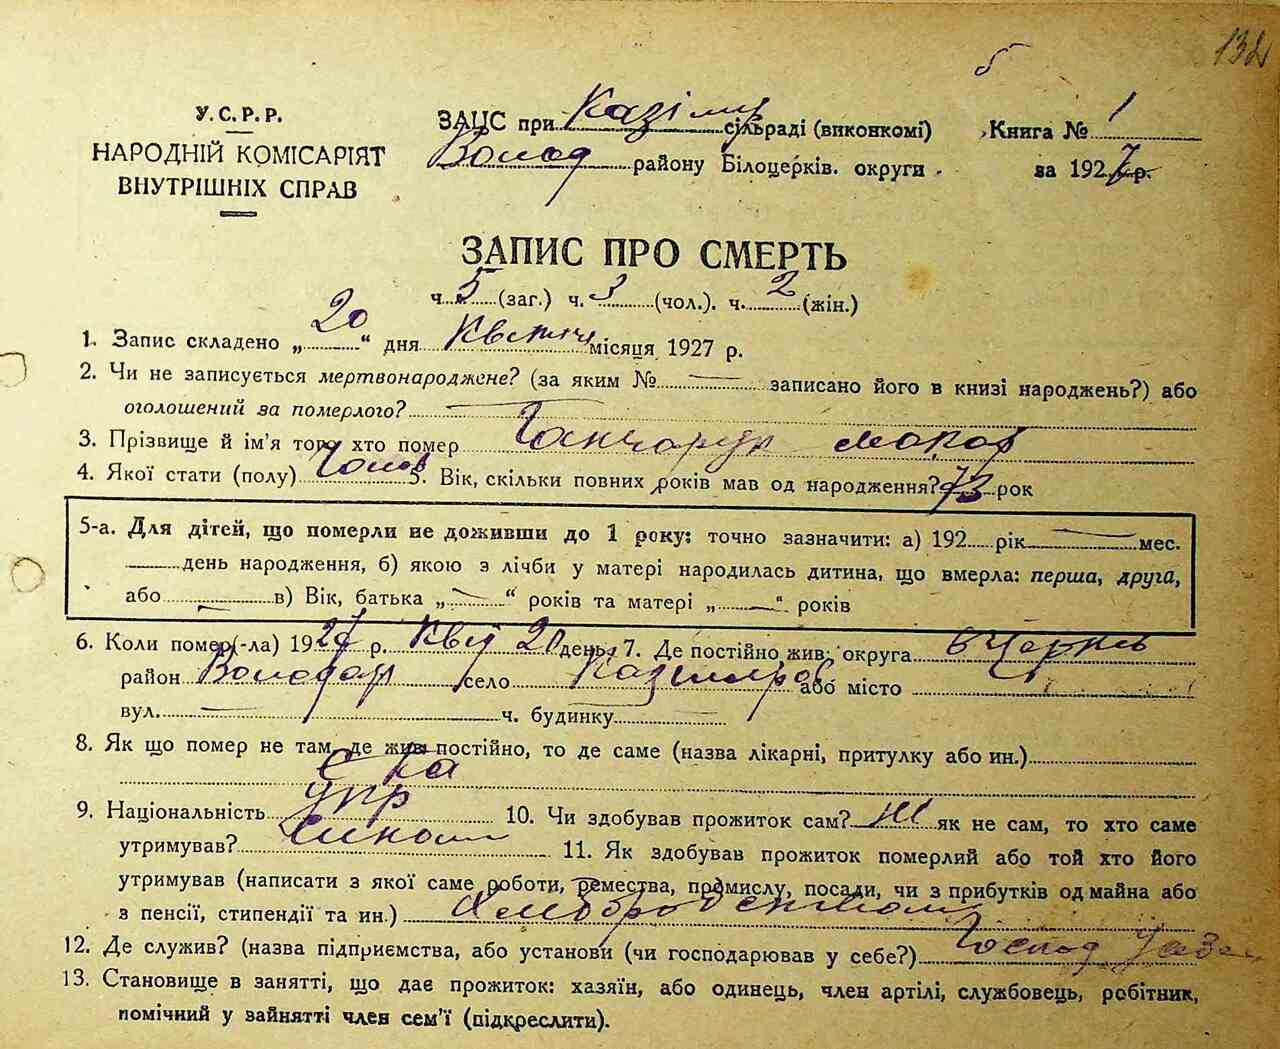 132
б
У.С.Р.Р.
НАРОДНІЙ КОМІСАРІЯТ
ВНУТРІШНІХ СПРАВ
ЗАЦС при Казімир сільраді (виконкомі)
Волод району Білоцерків. округи
Книга № 1
за 1927 р.
ЗАПИС ПРО СМЕРТЬ
ч. 5 (заг.) ч. 3 (чол.). ч. 2 (жін.)
1. Запис складено „20“ дня Квітня місяця 1927 р.
2. Чи не записується мертвонароджене? (за яким № — записано його в книзі народжень?) або
оголошений за померлого? —
3. Прізвище й ім'я того хто помер Ганчарук Макар
4. Якої стати (полу) Чолов 5. Вік, скільки повних років мав од народження? 73 рок
5-а. Для дітей, що померли не доживши до 1 року: точно зазначити: а) 192 рік — мес.
день народження, б) якою з лічби у матері народилась дитина, що вмерла: перша, друга,
або — в) Вік, батька „—“ років та матері „—“ років
6. Коли помер(-ла) 1927 р. Квіт 20 день, 7. Де постійно жив: округа Б Церків
район Володар село Казимиров або місто
вул. — ч. будинку —
8. Як що помер не там, де жив постійно, то де саме (назва лікарні, притулку або ин.)
9. Національність укр 10. Чи здобував прожиток сам? Ні як не сам, то хто саме
утримував? Сином 11. Як здобував прожиток померлий або той хто його
утримував (написати з якої саме роботи, ремества, промислу, посади, чи з прибутків од майна або
з пенсії, стипендії та ин.) Хлібробством
12. Де служив? (назва підприємства, або установи (чи господарював у себе?) Господ
13. Становище в занятті, що дає прожиток: хазяїн, або одинець, член артілі, службовець, робітник,
помічний у зайнятті член сем'ї (підкреслити).